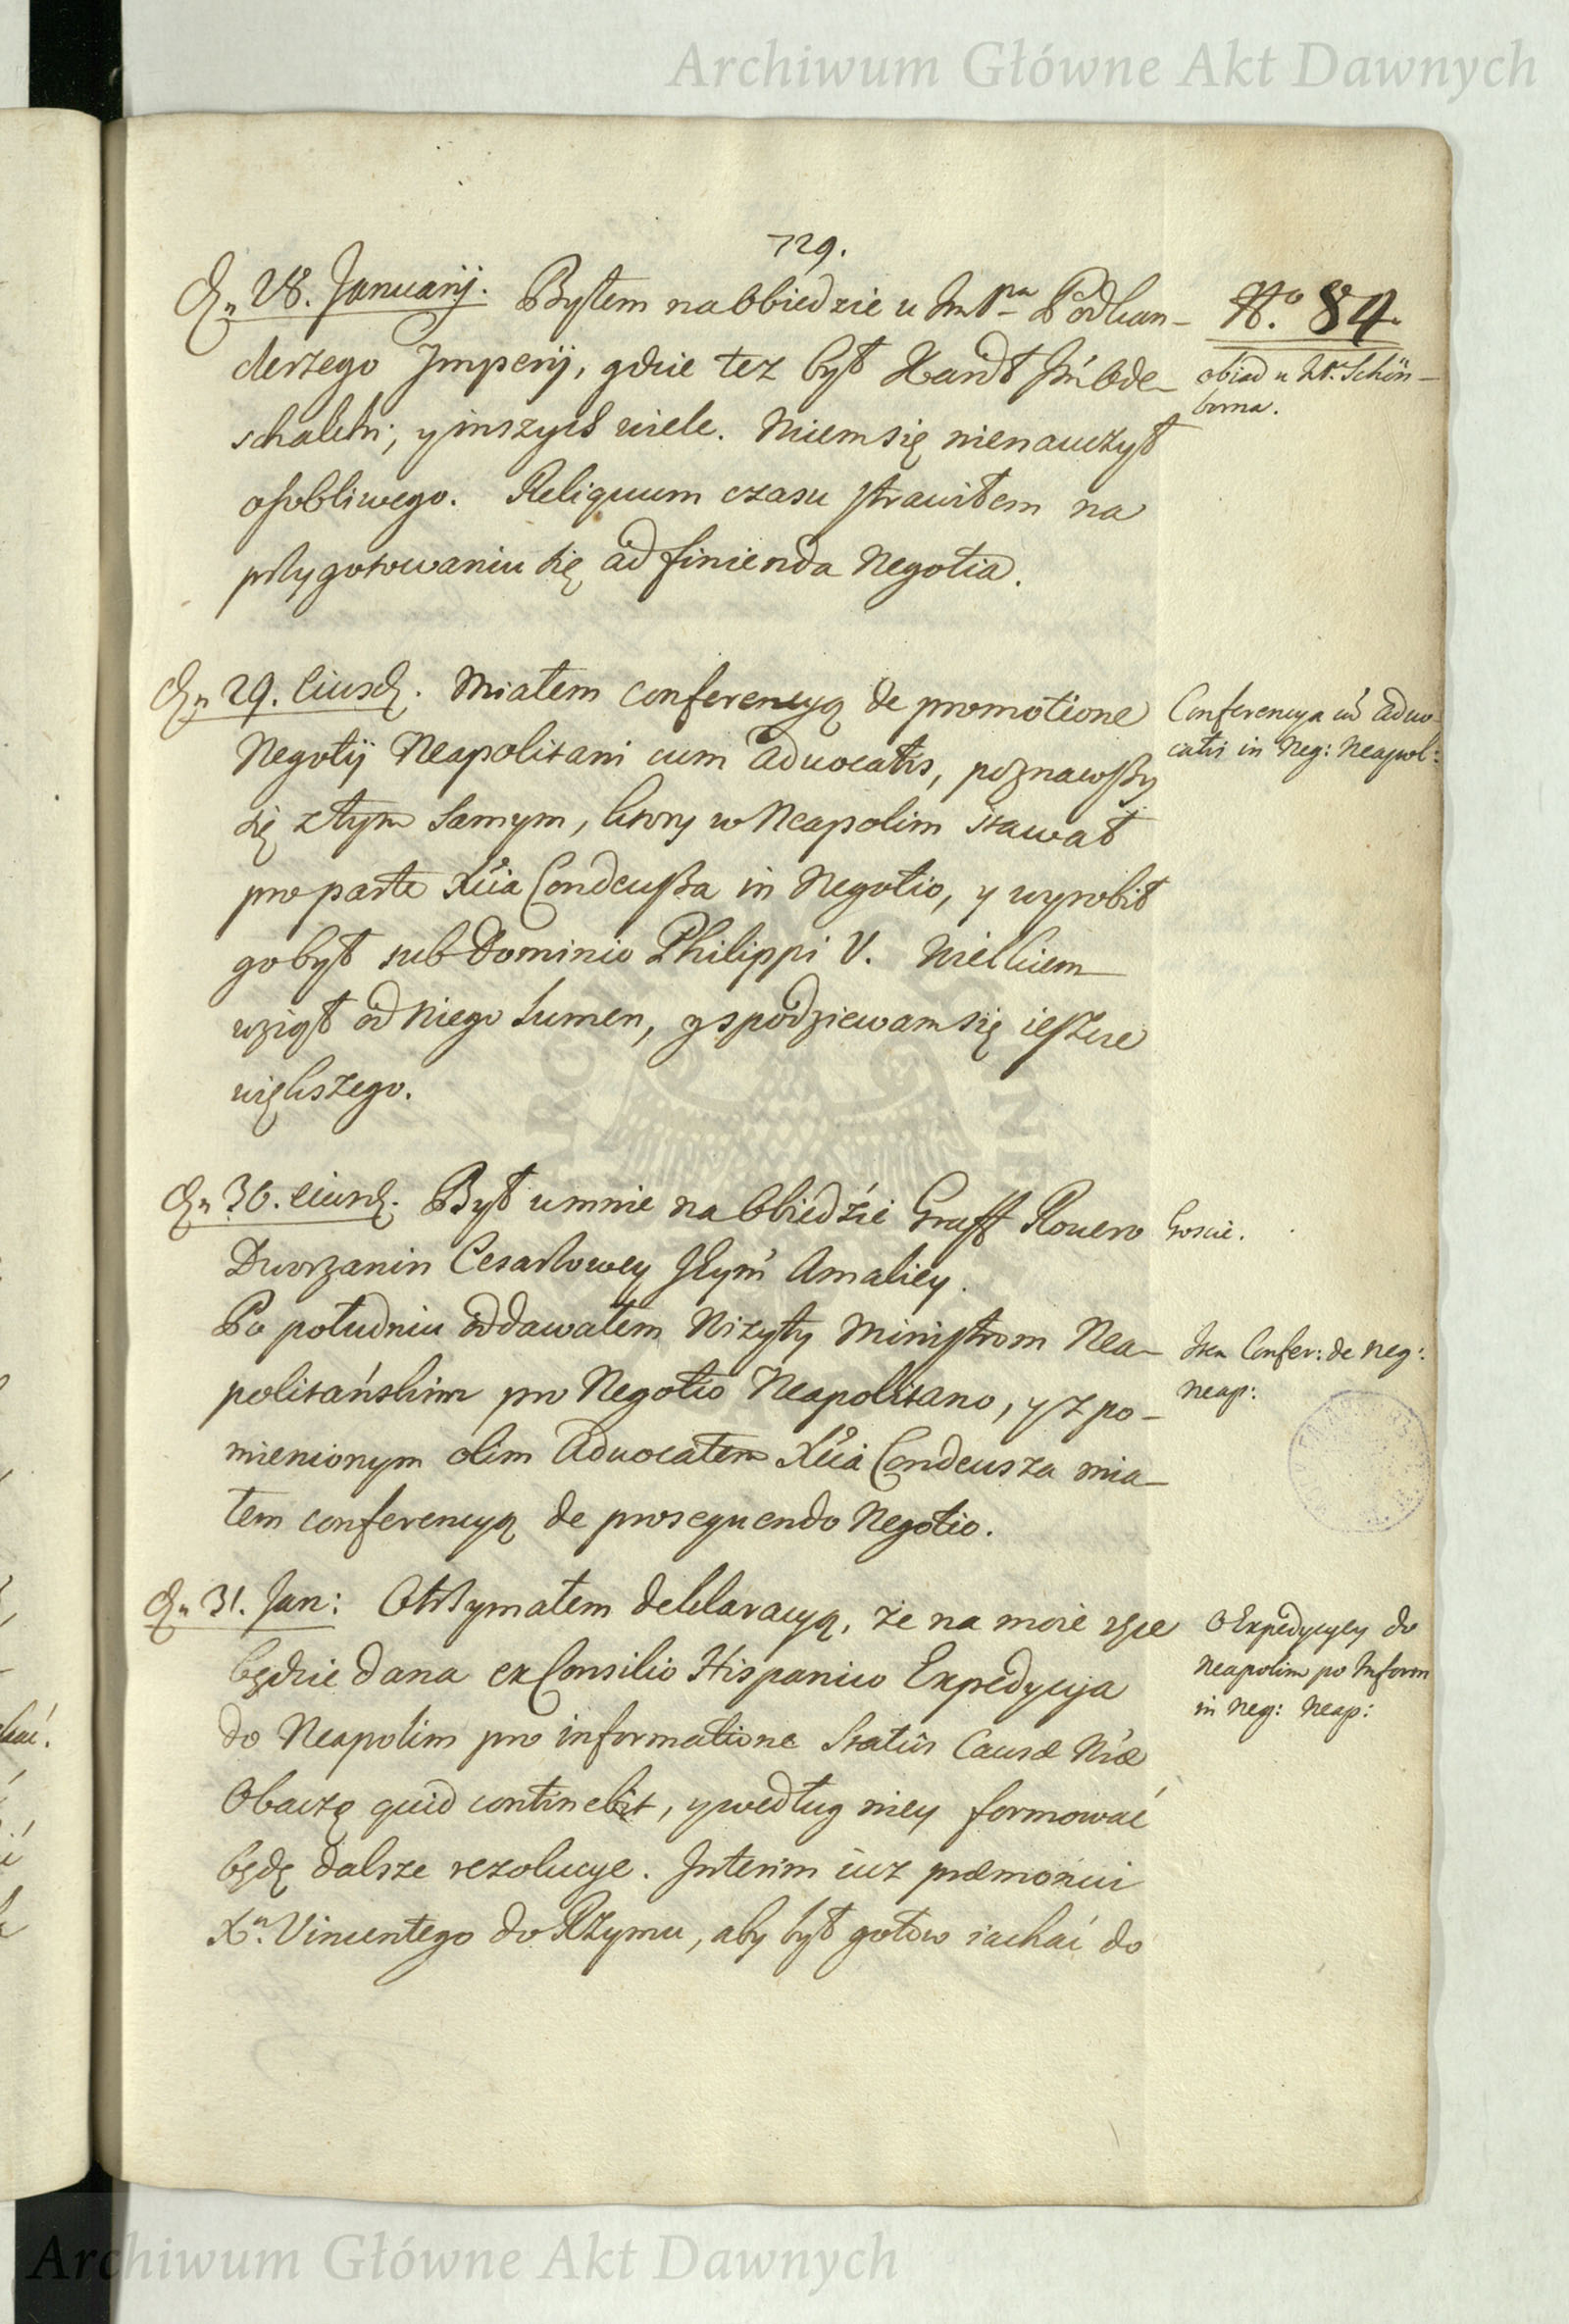 Archiwum Główne Akt Dawnych
729.
Dn 28. Januarij. Byłem na Obiedzie u ImPa Podkan-
clerzego Imperij, gdzie tez był Kard. Ode-
schalchi, y inszych wiele. Niem się nienauczył
osobliwego. Reliquum czasu strawiłem na
przygotowaniu się ad finienda Negotia.
No 84.
obiad u Schön-
borna.
Dn 29. Eiusd. Miałem conferencyą de promotione
Negotij Neapolitani cum Advocatis, poznawszy
się z tym samym, ktory w Neapolim stawał
pro parte Xcia Condeusza in Negotio, y wyrobił
go był sub Dominio Philippi V. Wielkiem
wziął od niego Lumen, y spodziewam się ieszcze
większego.
Conferencya cum Advo-
catis in Neg: Neapol:
Dn 30. eiusd. Był u mnie na Obiedzie Graff Rouero
Dworzanin Cesarzowey Amaliey.
Goscie.
Po południu oddawałem Wizyty Ministrom Nea-
politańskim pro Negotio Neapolitano, y z po-
mienionym olim Advocatem Xcia Condeusza mia-
łem conferencyą de prosequendo Negotio.
Confer: de Neg:
Neap:
Dn 31. Jan: Otrzymałem deklaracyą, że na moie ręce
będzie dana ex Consilio Hispanico Expedycyja
do Neapolim pro informatione Statûs Causæ Nræ
Obaczę quid continebit, y według niey formować
będę dalsze rezolucye. Interim iuz præmonui
Xn. Vincentego do Rzymu, aby był gotow iachać do
O Expedycyey do
Neapolim po Inform
in Neg: Neap:
Archiwum Główne Akt Dawnych